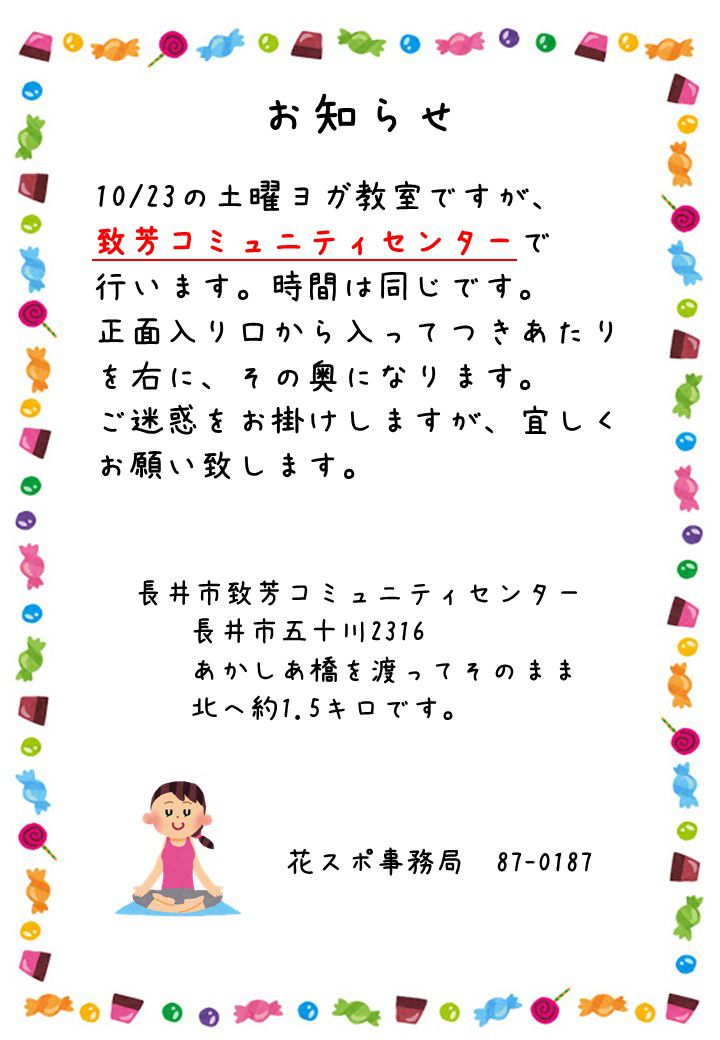 お知らせ
10/23の土曜ヨガ教室ですが、
致芳コミュニティセンターで
行います。時間は同じです。
正面入り口から入ってつきあたり
を右に、その奥になります。
ご迷惑をお掛けしますが、宜しく
お願い致します。
長井市致芳コミュニティセンター
長井市五十川2316
あかしあ橋を渡ってそのまま
北へ約1.5キロです。
花スポ事務局　87-0187